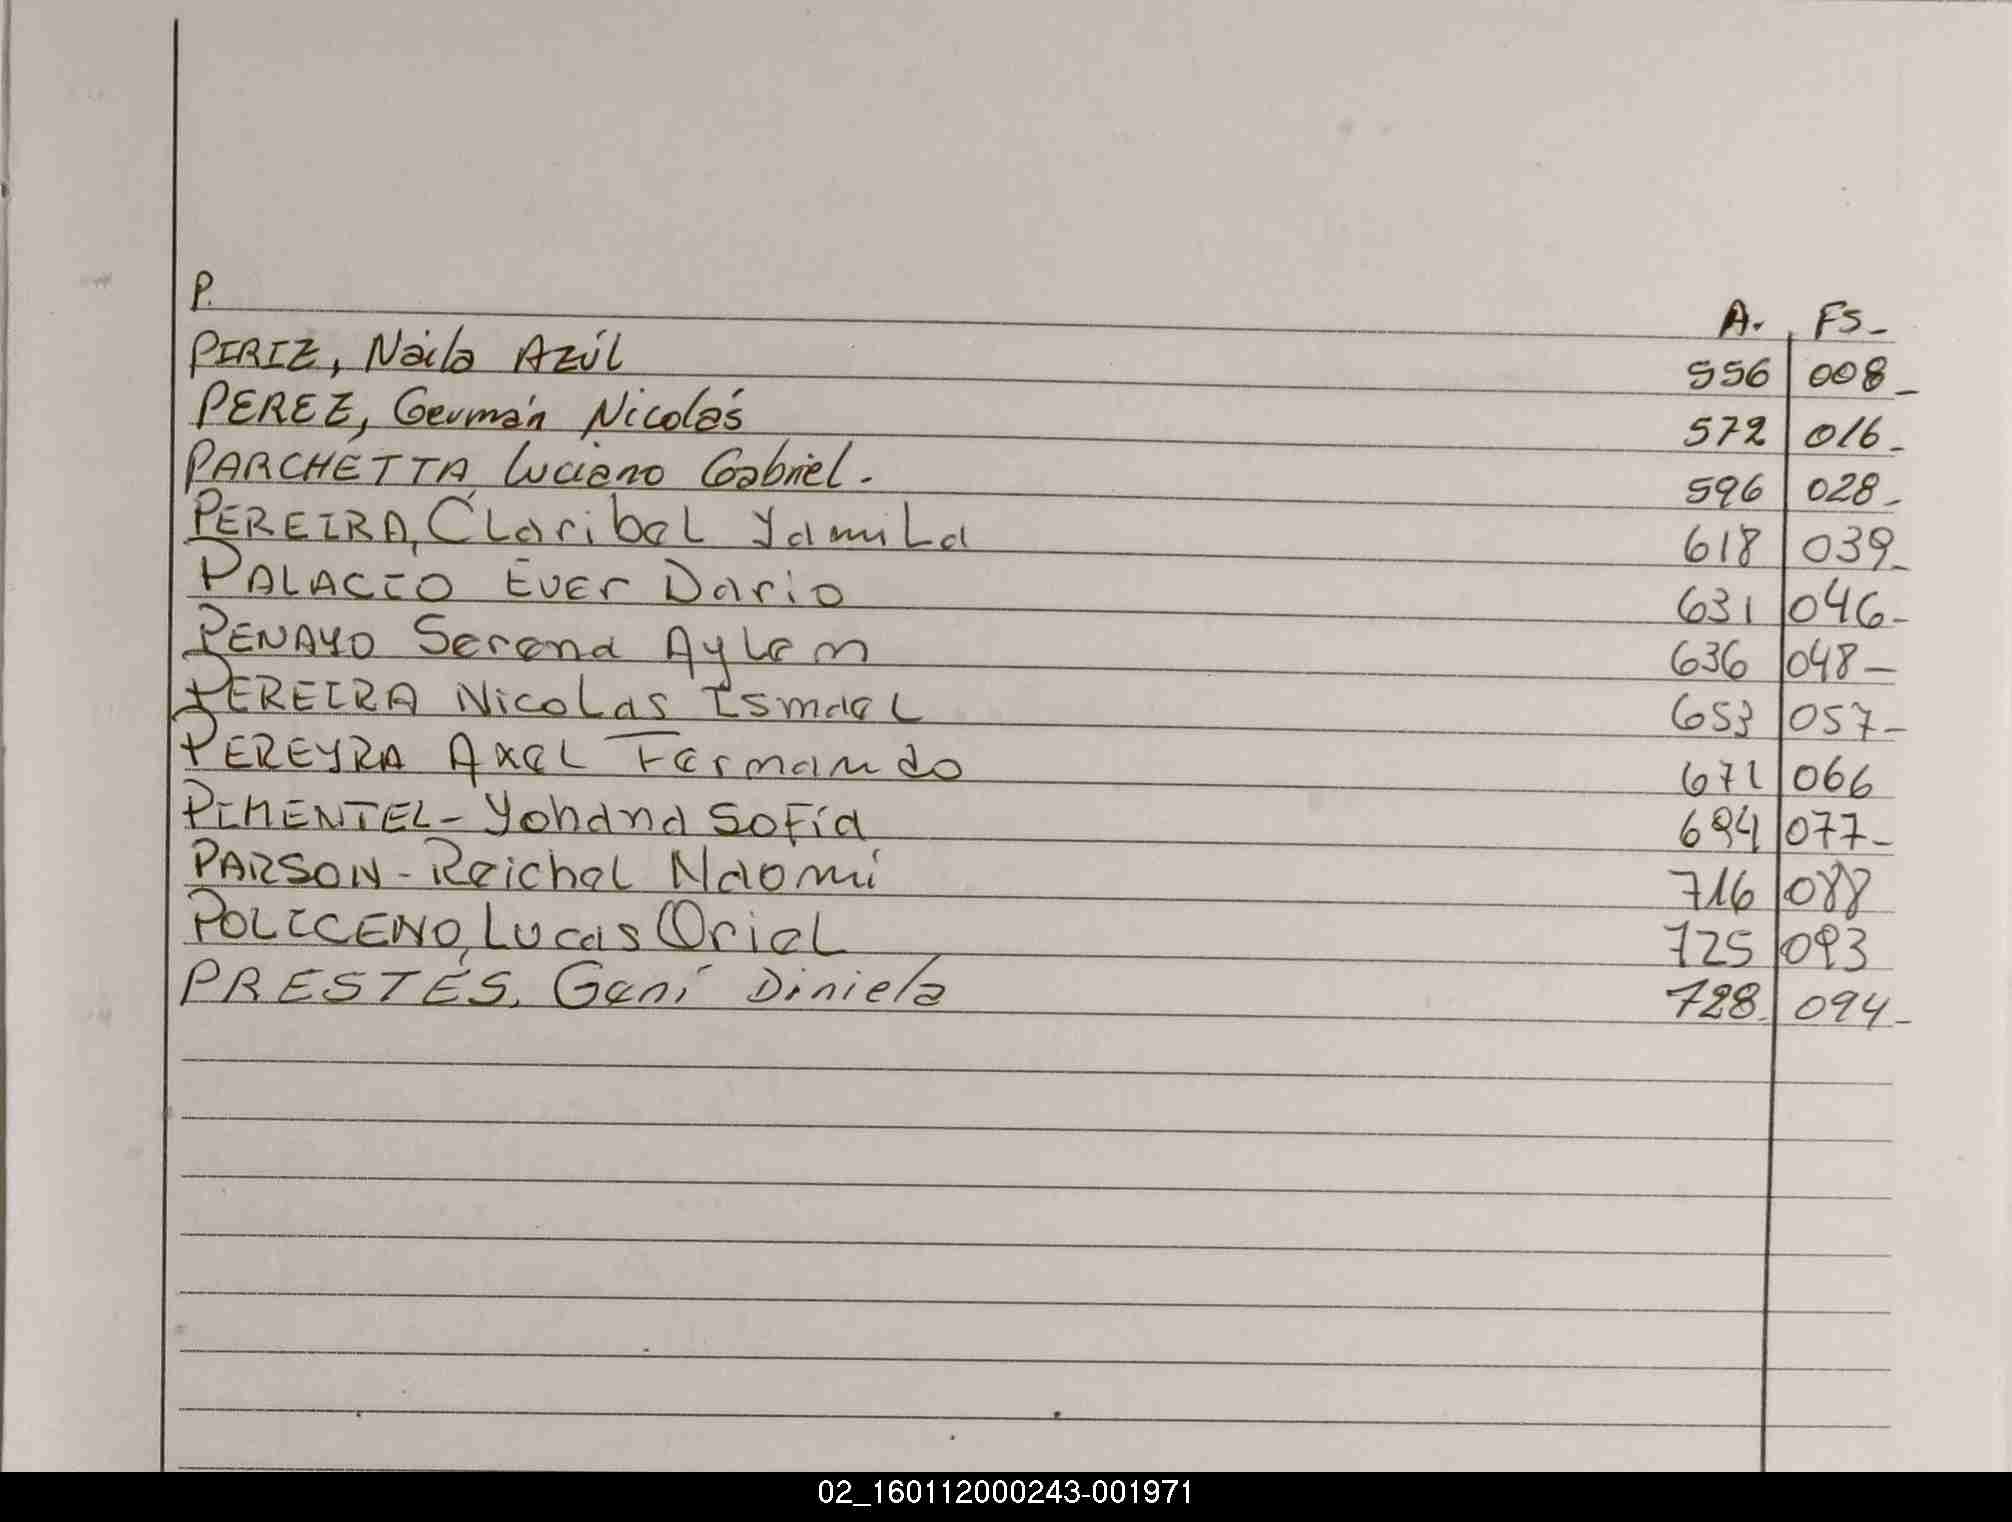 P. A. FS-
PIRIZ, Naila Azúl 556 008-
PEREZ, Germán Nicolás 572 016-
PARCHETTA Luciano Gabriel. 596 028-
PEREIRA, Claribel Yamila 618 039-
PALACIO Ever Dario 631 046-
PENAYO Serena Aylem 636 048-
PEREIRA Nicolas Ismael 653 057-
PEREYRA Axel Fernando 671 066
PIMENTEL- Yohana Sofía 694 077-
PARSON- Reichel Naomí 716 088
POLICENO, Lucas Oriel 725 093
PRESTES, Gení Diniela 728 094-
02_160112000243-001971